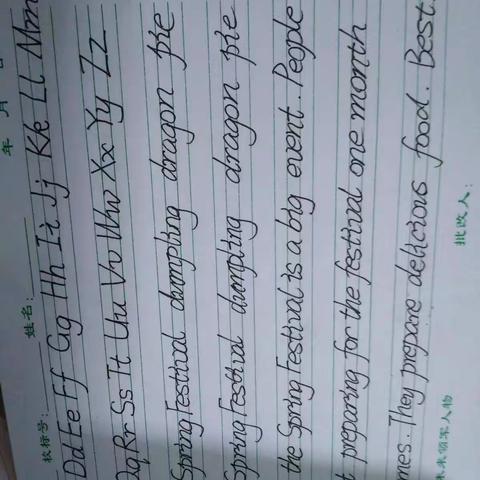 年 月 日
校标号: 姓名:
Dd Ee Ff Gg Hh Ii Jj Kk Ll Mm
Qq Rr Ss Tt Uu Vv Ww Xx Yy Zz
Spring Festival dumpling dragon pie
Spring Festival dumpling dragon pie
the Spring Festival is a big event. People
t preparing for the festival one month
mes. They prepare delicious food. Best
未来领军人物 批改人: